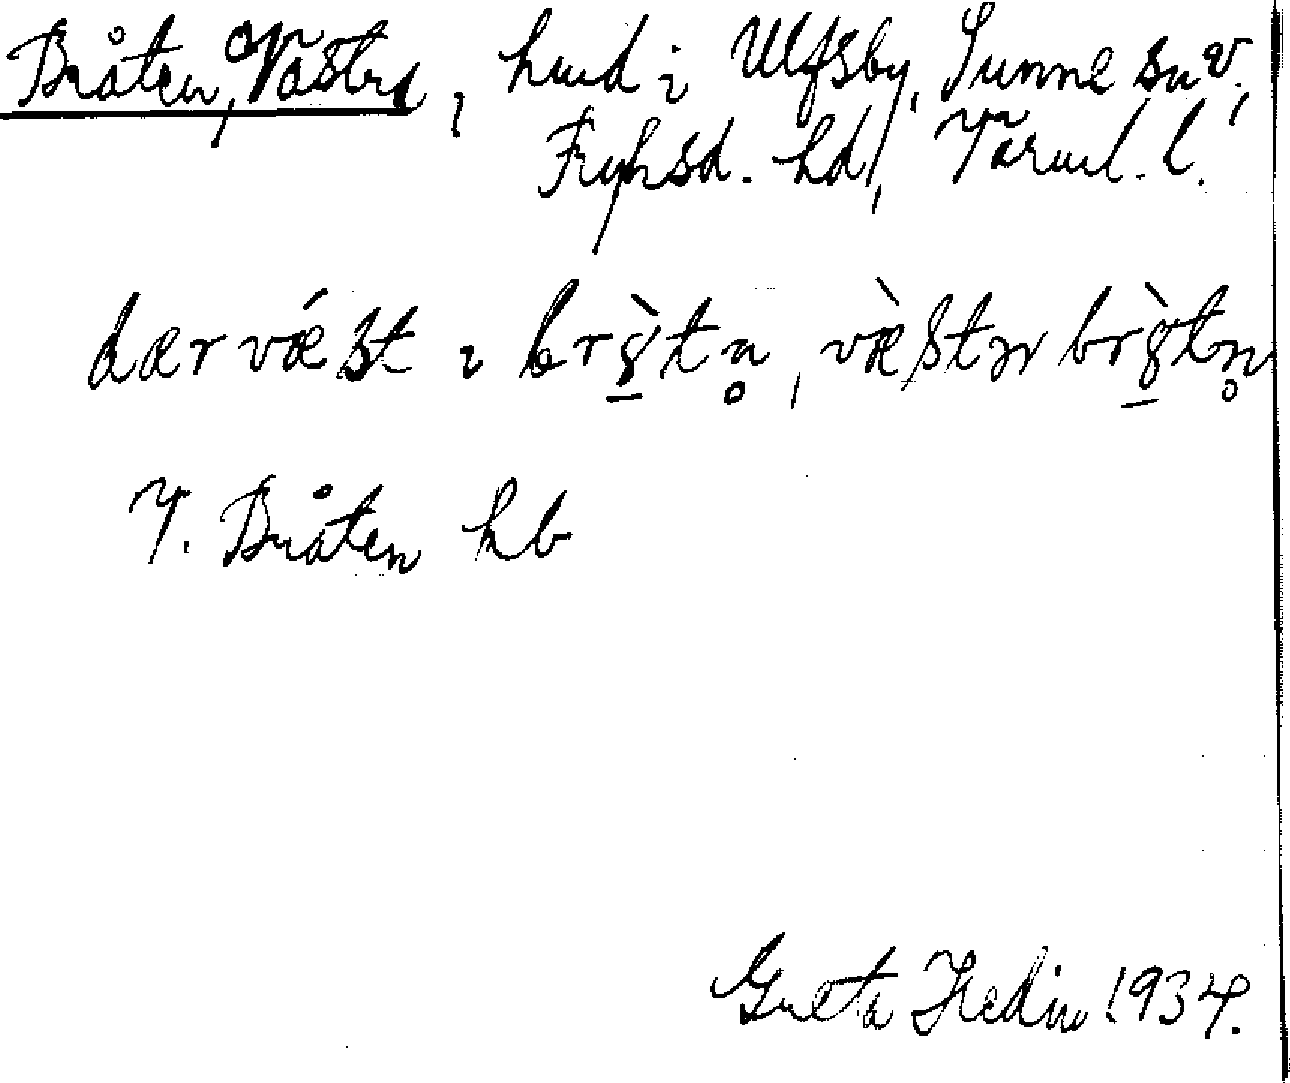 Bråten, Västra, hmd i Ulfsby, Sunne sn v.,
Fryksd. hd, Värml. l.
dær vǽst i brɞ̀tn̥, væ̀stɹ brɞ̀tn̥
V. Bråten hb
Greta Hedin 1934.